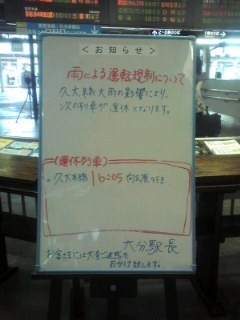 ＜お知らせ＞
雨による運転規制について
久大本線大雨の影響により、
次の列車が運休となります。
(運休列車)
・久大本線 16:05 向之原行き
大分駅長
お客様には大変ご迷惑を
おかけ致します。